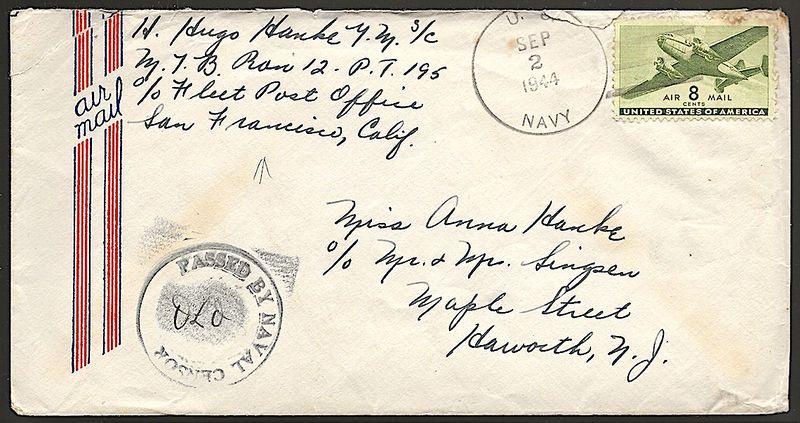 H. Hugo Hanke Y. M. 3/C
M. T. B. Ron 12. P. T. 195
c/o Fleet Post Office
San Francisco, Calif.
air
mail
U. S.
SEP
2
1944
NAVY
AIR 8 MAIL
CENTS
UNITED STATES OF AMERICA
Miss Anna Hanke
c/o Mr. & Mr. Singsen
Maple Street
Haworth, N. J.
PASSED BY NAVAL CENSOR